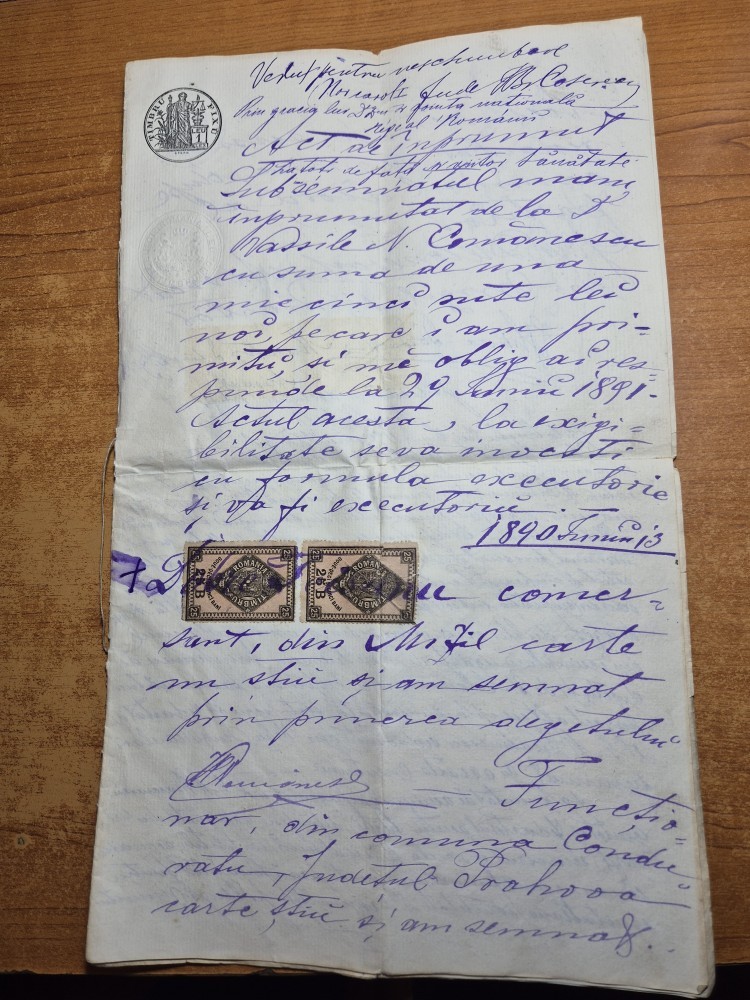 TIMBRU FIX
LEU 1
Vedut pentru neschimbare
Noi Carol I Jude
Prin gracia lui D-deu și vointa nationala
Rege al Romăniei
Act de inprumut
La toti de fatá și viitori Sânătate
Subsemnatul mam
inprumutat de la D
Vassile N. Comănescu
cu suma de una
mie cinci sute lei
noi, pe care i am pri=
mitu, si mĕ oblig ai res=
punde la 29 Iuniu 1891.
Actul acesta, la exigi=
bilitate seva investi
cu formula executorie
și va fi executoriu.
1890 Iuniu 13
25 ROMANIA TIMBRU 25 B 25
25 ROMANIA TIMBRU 25 B 25
+ D comer=
sant, din Mizil carte
nu stiu și am semnat
prin punerea degetului
Funcțio=
nar, din comuna Condu=
ratu, Județul Prahova
carte știu și am semnat.